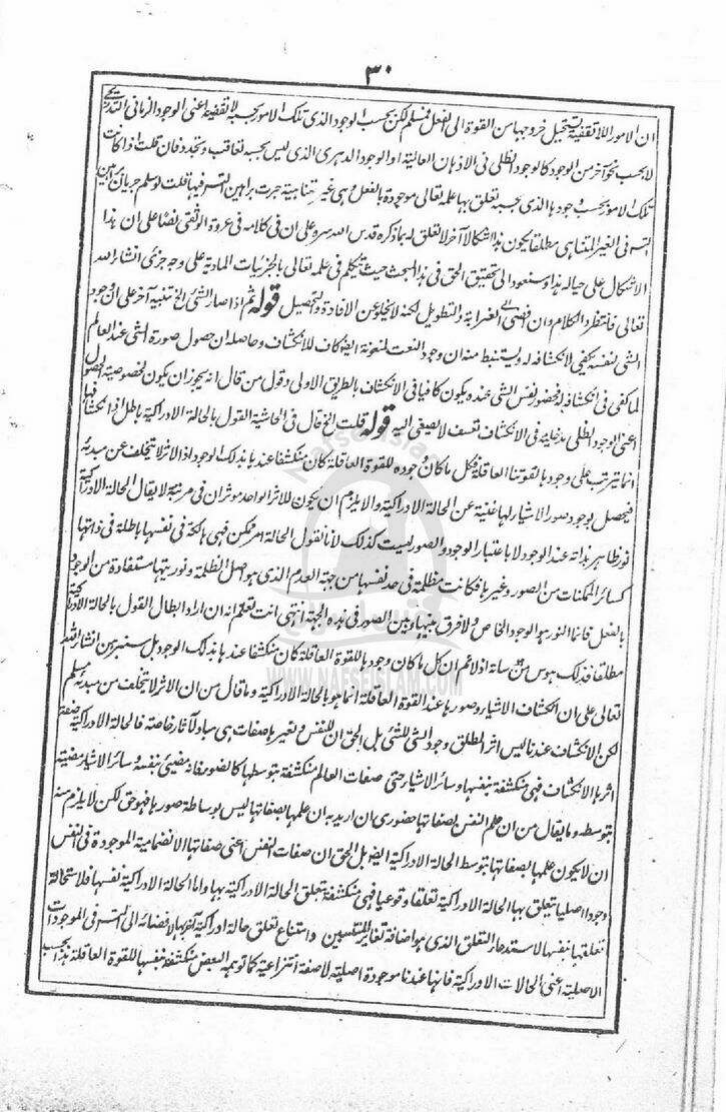 ٣٠
ان الامور اللاتقفية يستحيل خروجها من القوة الى الفعل مسلم لكن بحسب الوجود الذى تلك الامور بحسبه لاتقفية اعنى الوجود الزمانى التدريجى
لا بحسب نحو آخر من الوجود كالوجود الظلى فى الاذهان العالية او الوجود الدهرى الذى ليس بحسبه تعاقب وتجدد فان قلت اذا كانت
تلك الامور بحسب وجودها الذى بحسبه تعلق بها علمه تعالى موجودة بالفعل وهى غير متناهية جرت براهين التسلسل فيها قلت لو سلم جريان براهين
التسلسل فى الغير المتناهى مطلقا يكون هذا اشكالا آخر لا تعلق له بما ذكره قدس الله سره على ان فى كلامه فى عروة الوثقى نصا على ان هذا
الاشكال على حياله هذا وسنعود الى تحقيق الحق فى هذا المبحث حيث نتكلم فى علمه تعالى بالجزئيات المادية على وجه جزئى انشاء الله
تعالى فانتظره الكلام وان افضى الى الغرابة والتطويل لكنه لا يخلو عن الافادة والتحصيل قوله ثم اذا صار الشئ الخ تنبيه آخر على ان وجود
الشئ لنفسه يكفى لانكشافه له ويستنبط منه ان وجود النعت لمنعوته ايضا كاف للانكشاف وحاصله ان حصول صورة الشئ عند العالم
لما كفى فى انكشافه له فحضور نفس الشئ عنده يكون كافيا فى الانكشاف بالطريق الاولى وقول من قال انه يجوز ان يكون لخصوصية الحصول
اعنى الوجود الظلى مدخلية فى الانكشاف تعسف لا يصغى اليه قوله قلت الخ قال فى الحاشية القول بالحالة الادراكية باطل اذ انكشافها
انما يترتب على وجودها لقوتنا العاقلة فكل ما كان وجوده للقوة العاقلة كان منكشفا عندها بذلك الوجود اذ الاثر لا يتخلف عن مبدئه
فيحصل بوجود صور الاشياء لها غنية عن الحالة الادراكية والا يلزم ان يكون للاثر الواحد موثران فى مرتبة لا يقال الحالة الادراكية
نور ظاهر بذاته عند الوجود لا باعتبار الوجود والصور ليست كذلك لانا نقول الحالة امر ممكن فهى هالكة فى نفسها باطلة فى ذاتها
كسائر الممكنات من الصور وغيرها فكانت مظلمة فى حد نفسها من جهة العدم الذى هو اصل الظلمة ونوريتها مستفادة من الوجود
بالفعل فانما النور هو الوجود الخاص لا فرق بينها وبين الصور فى هذه الجهة انتهى انت تعلم انه ان اراد ابطال القول بالحالة الادراكية
مطلقا فذلك هوس اذ لا نم ان كل ما كان وجودها للقوة العاقلة كان منكشفا عندها بذلك الوجود بل سنبرهن انشاء الله
تعالى على ان انكشاف الاشياء وصورها عند القوة العاقلة انما هو بالحالة الادراكية وما قال من ان الاثر لا يتخلف من مبدئه مسلم
لكن الانكشاف عندنا ليس اثر المطلق وجود الشئ للشئ بل الحق ان للنفس ولغيرها صفات هى مبادلآثار خاصة فالحالة الادراكية صفة
اثرها الانكشاف فهى منكشفة بنفسها وسائر الاشياء حتى صفات العالم منكشفة بتوسطها كالضوء فانه مضئ بنفسه وسائر الاشياء مضيئة
بتوسطه وما يقال من ان علم النفس بصفاتها حضورى ان اريد به ان علمها بصفاتها ليس بوساطة صورها فهو حق لكن لا يلزم منه
ان لا يكون علمها بصفاتها بتوسط الحالة الادراكية ايضا بل الحق ان صفات النفس اعنى صفاتها الانضمامية الموجودة فى النفس
وجودا اصليا يتعلق بها الحالة الادراكية تعلقا وقوعيا فهى منكشفة بتعلق الحالة الادراكية بها واما الحالة الادراكية نفسها فلاستحالة
تعلقها بنفسها لاستدعاء التعلق الذى هو اضافة تغاير المنتسبين وامتناع تعلق حالة ادراكية آخر بها لافضائه الى التسلسل فى الموجودات
الاصلية اعنى الحالات الادراكية فانها عندنا موجودة اصلية لا صفة انتزاعية كما توهمه البعض منكشفة بنفسها للقوة العاقلة هذا بحسب
Nafse Islam
WWW.NAFSEISLAM.COM